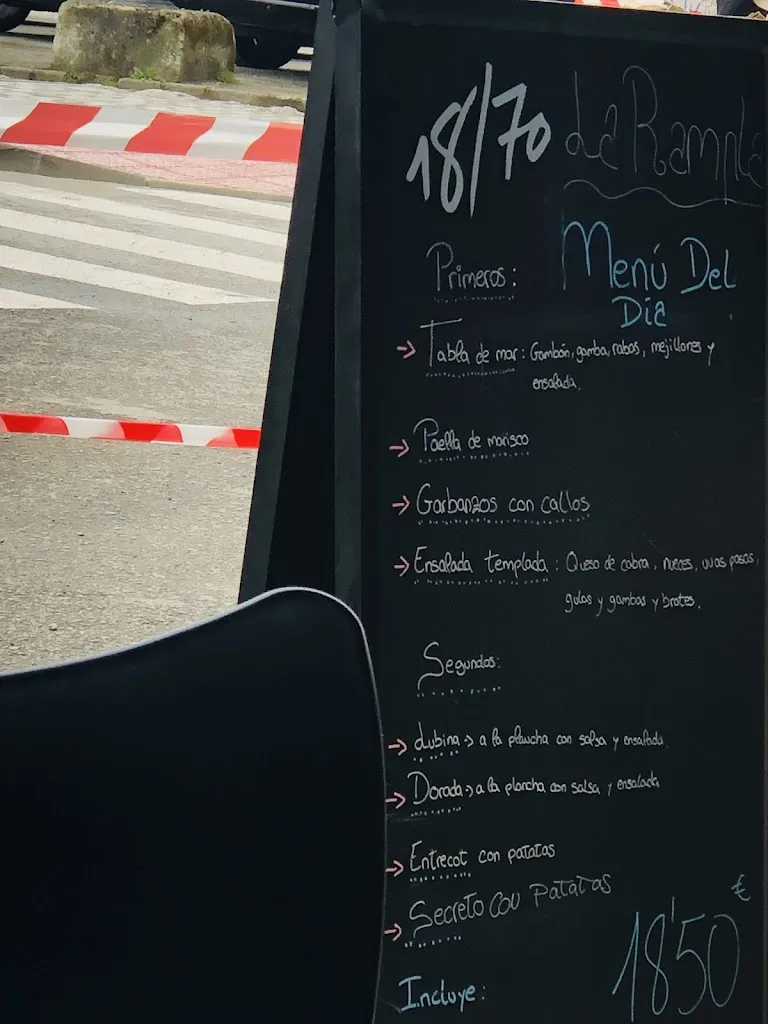 18/70 La Rampla
Menú Del
Día
Primeros:
→ Tabla de mar: Gambón, gamba, rabas, mejillones y
ensalada.
→ Paella de marisco
→ Garbanzos con callos
→ Ensalada templada: Queso de cabra, nueces, uvas pasas,
gulas y gambas y brotes.
Segundos:
→ Lubina → a la plancha con salsa y ensalada.
→ Dorada → a la plancha con salsa y ensalada
→ Entrecot con patatas
→ Secreto con Patatas
Incluye: 18'50 €